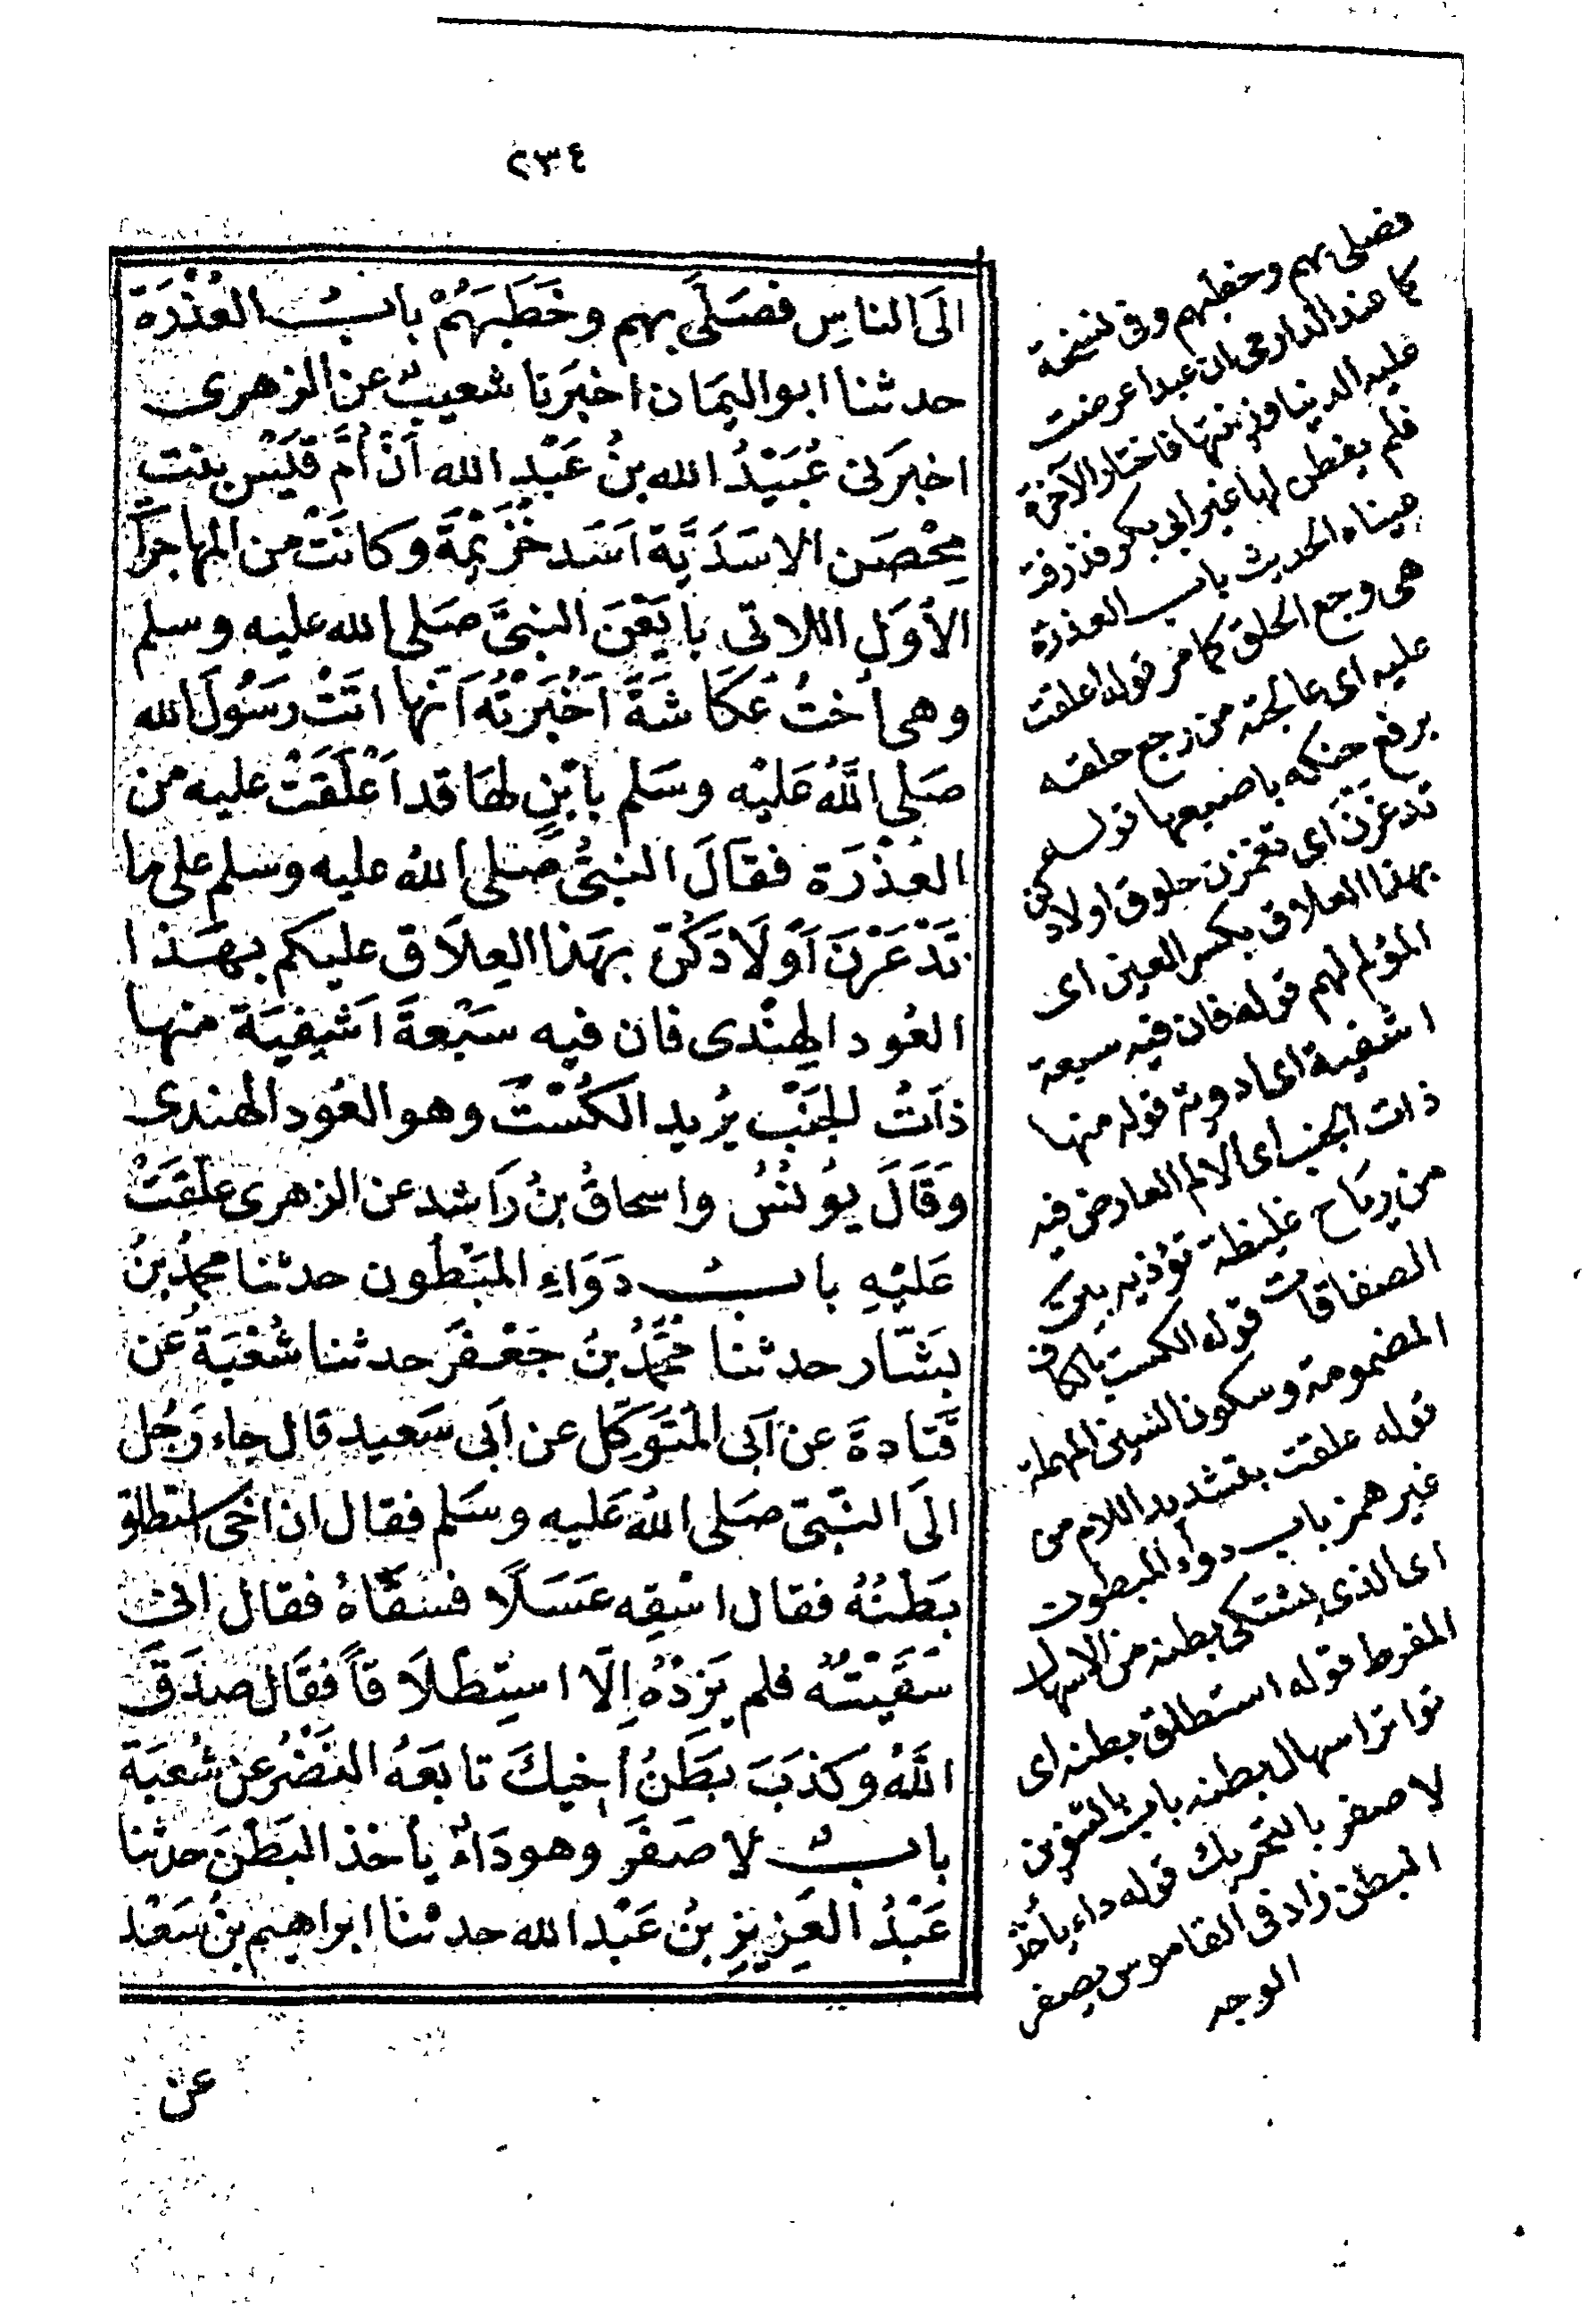 ٢٣٤
الَى الناسِ فصَلَّى بهم وخَطَبَهُمْ بابُ العُذْرَة
حدثنا ابو اليَمَان اخبَرنا شعيبٌ عن الزهرى
اخبرَنى عُبَيْدُ الله بنُ عَبْدِ الله اَنَّ اُمَّ قَيْس بنت
مِحْصَن الاسَدَيَّة اَسَد خُزَيْمَةَ وكانَتْ من المهاجرَا
الأُوَلِ اللاتى بايَعْنَ النبىَّ صَلى الله عليه وسلم
وهى اُختُ عُكَّاشَةَ اَخْبَرَتْهُ اَنَّها اتَتْ رَسُولَ الله
صَلى اللهُ عَليْه وسَلم بابْنٍ لهَا قد اَعْلَقَتْ عليه من
العُذْرَة فقالَ النبىُّ صَلى اللهُ عليه وسلم على ما
تَدْغَرْنَ اَوْلَادَكُنَّ بهَذا العِلاَق عليكم بهَذا
العُود الهِنْدى فان فيه سَبْعةَ اَشْفِيَة منها
ذَاتُ الجَنْب يُريد الكُسْتَ وهو العُود الهندى
وَقَالَ يونُسُ واسحاقُ بنُ رَاشد عن الزهرى عَلَّقَتْ
عَليْهِ بابُ دَوَاءِ المبْطُون حدثنا محمدُ بنُ
بَشّار حدثنا محمَّدُ بنُ جَعْفَر حدثنا شُعْبَةُ عَن
قَتادةَ عن اَبى المُتَوَكِّل عن اَبى سَعيد قال جاء رَجُل
الَى النَّبىّ صَلى اللهُ عَليه وسَلم فقال ان اَخى استطلق
بَطْنُهُ فقال اسْقِه عَسَلًا فسَقَاهُ فقال انى
سَقَيْتُهُ فلم يَزِدْهُ اِلَّا استِطْلاَقاً فقَال صَدَقَ
اللهُ وكَذبَ بَطْنُ اَخيكَ تابَعَهُ النضْرُ عن شُعْبَةَ
بابُ لا صَفَرَ وهو دَاءٌ يأخذ البَطْنَ حدثنا
عَبْدُ العَزِيزِ بنُ عَبْد الله حدثنَا ابراهيم بنُ سَعْد
عن
فصلى بهم وخطبهم وفى نسخة
كما عند الدارمى ان عبدا عرضت
عليه الدنيا وزينتها فاختار الآخرة
فلم يفطن لها غير ابى بكر فذرفت
عيناه الحديث باب العذرة
هى وجع الحلق كما مر قوله اعلقت
عليه اى عالجته من وجع حلقه
برفع حنكه باصبعها قوله
تدغرن اى تغمزن حلوق اولادكن
بهذا العلاق بكسر العين اى
المؤلم لهم قوله فان فيه سبعة
اشفية اى ادوية قوله منها
ذات الجنب اى الالم العارض فيه
من رياح غليظة تؤذيه بين
الصفاقات قوله الكست بالكاف
المضمومة وسكون السين المهملة
قوله علقت بتشديد اللام من
غير همز باب دواء المبطون
اى الذى يشتكى بطنه من الاسهال
المفرط قوله استطلق بطنه اى
تواتر اسهال بطنه باب بالتنوين
لا صفر بالتحريك قوله داء يأخذ
البطن زاد فى القاموس يصفر
الوجه